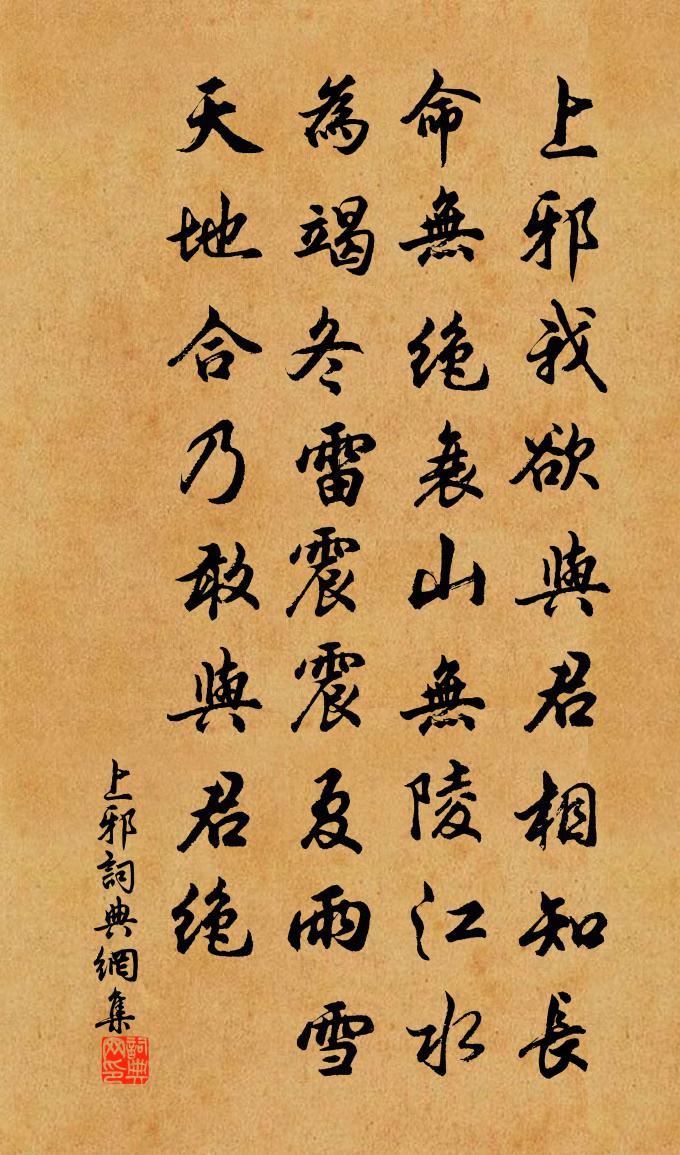 上邪我欲與君相知長
命無絕衰山無陵江水
為竭冬雷震震夏雨雪
天地合乃敢與君絕
上邪詞典網集
詞典
网印